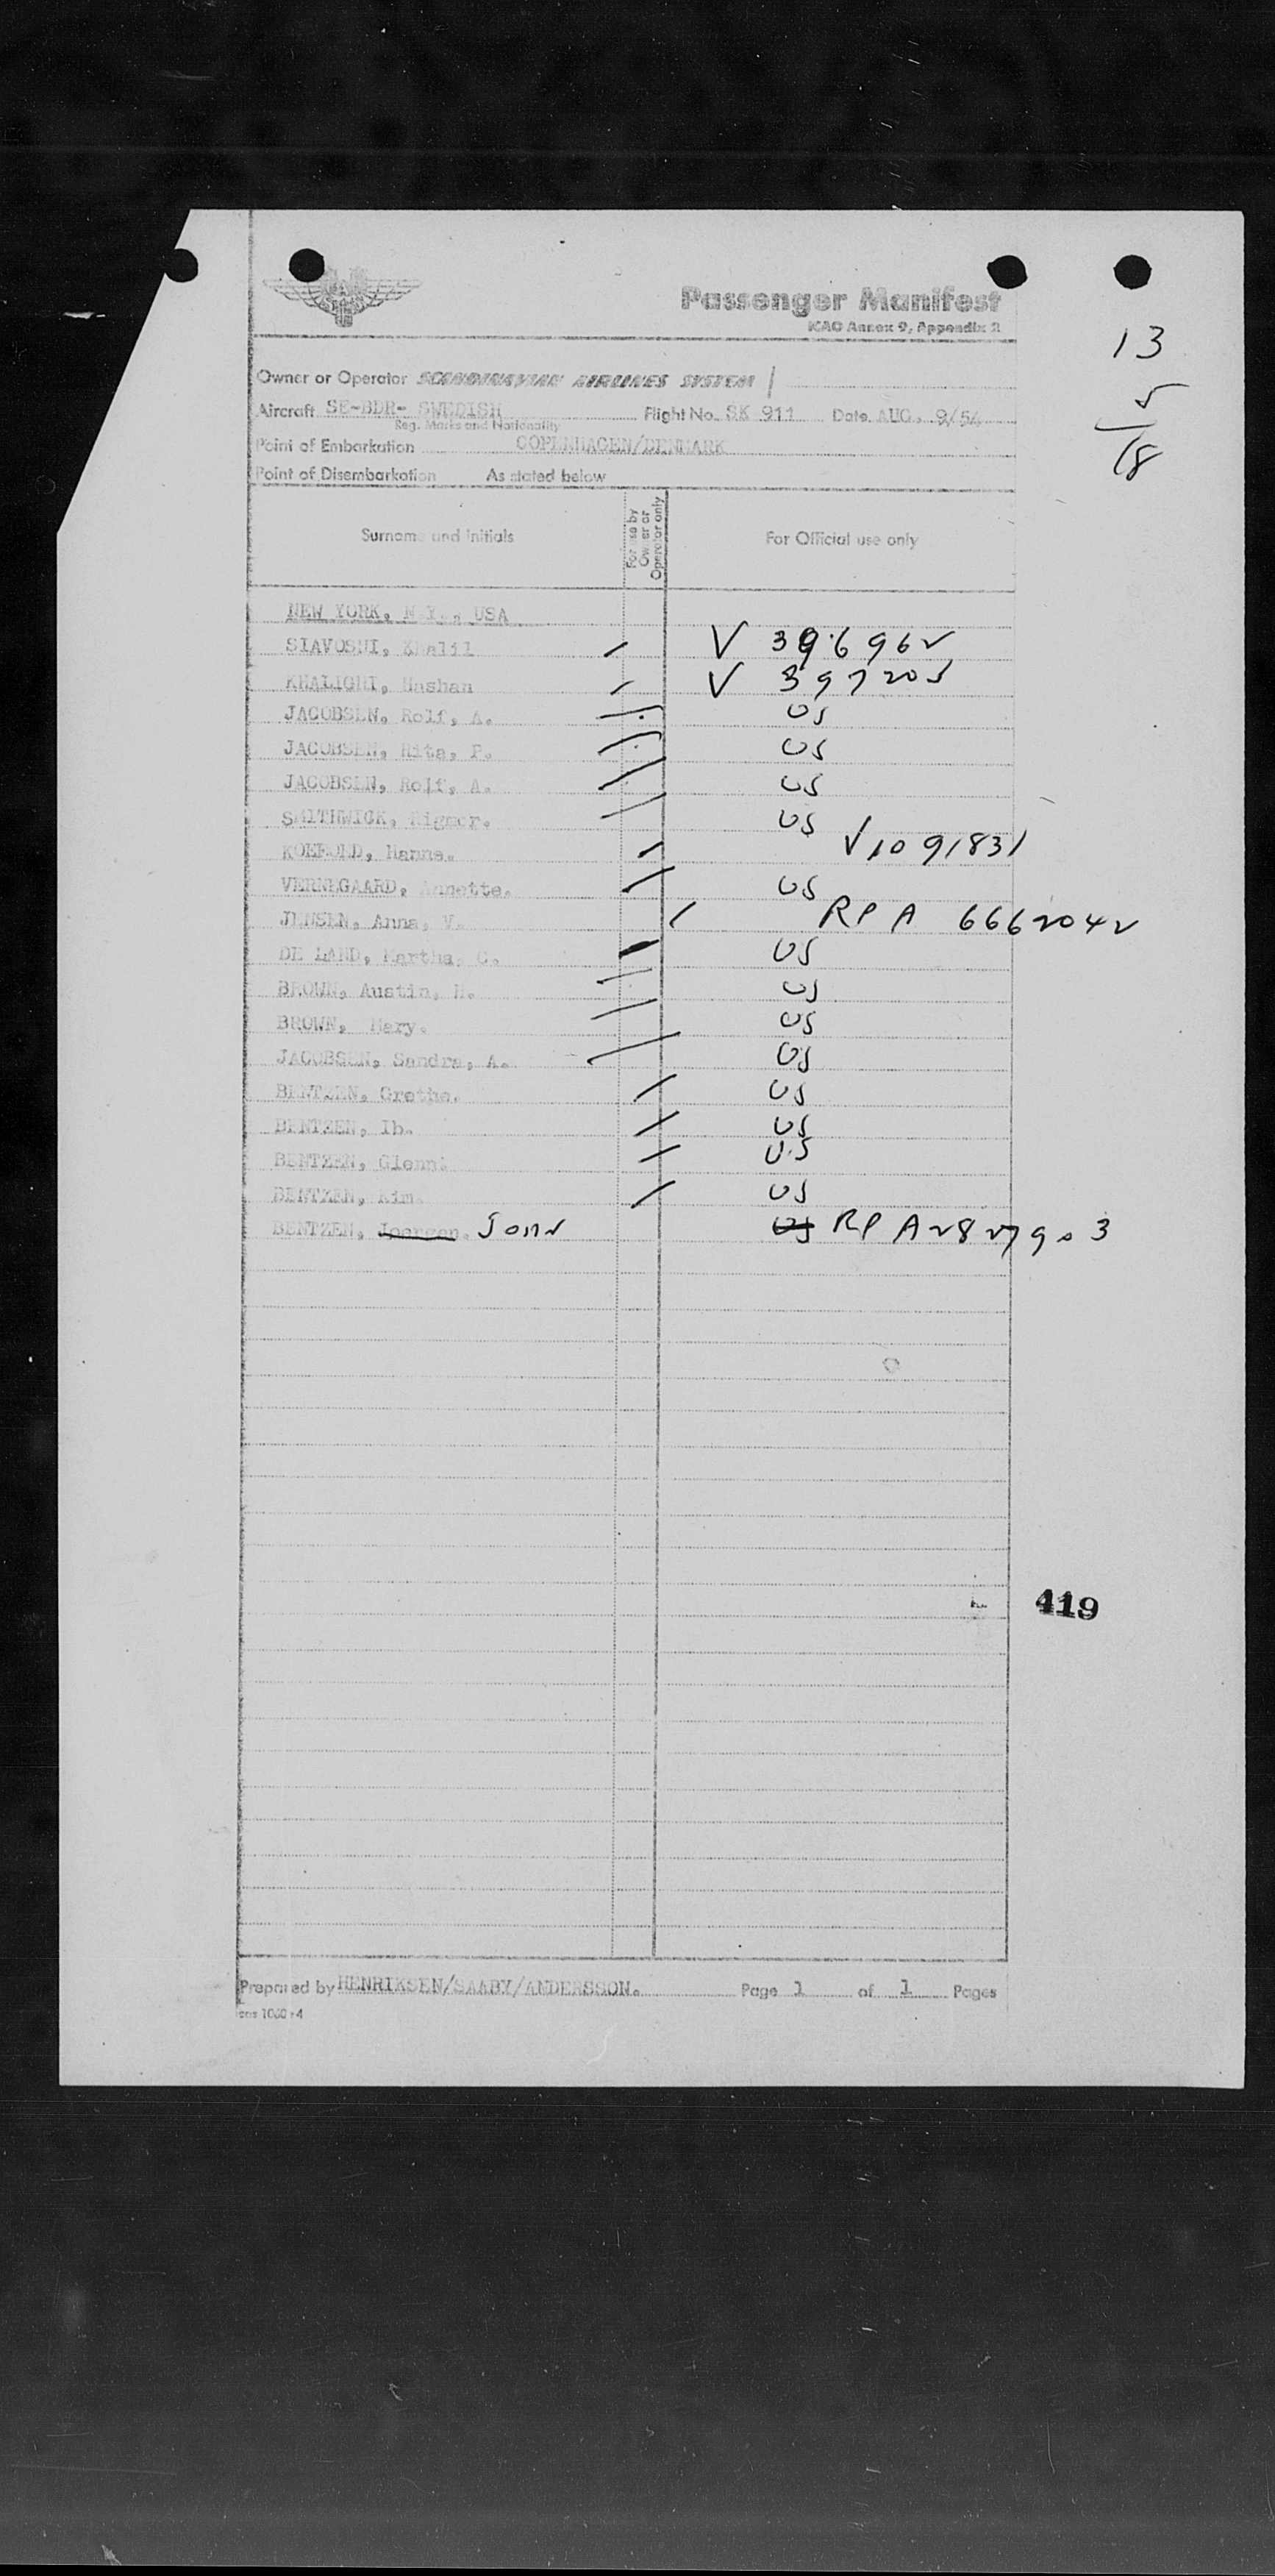 Passenger Manifest
ICAO Annex 9, Appendix 2
13
5
18
Owner or Operator SCANDINAVIAN AIRLINES SYSTEM
Aircraft SE-BDR- SWEDISH Flight No. SK 911 Date AUG. 9/54
Reg. Marks and Nationality
Point of Embarkation COPENHAGEN/DENMARK
Point of Disembarkation As stated below
Surname and initials For use by Owner or Operator only For Official use only
NEW YORK, N.Y., USA
SIAVOSHI, Khalil V 396962
KHALIGHI, Hashan V 397205
JACOBSEN, Rolf, A. US
JACOBSEN, Rita, P. US
JACOBSEN, Rolf, A. US
SMITHWICK, Rigmor. US
KOEFOED, Hanne. V1091831
VERNEGAARD, Annette. US
JENSEN, Anna, V. RP A 6662042
DE LAND, Martha, C. US
BROWN, Austin, H. US
BROWN, Mary. US
JACOBSEN, Sandra, A. US
BENTZEN, Grethe. US
BENTZEN, Ib. US
BENTZEN, Glenn. U.S
BENTZEN, Kim. US
BENTZEN, Joergen. JOHN US RP A2827903
419
Prepared by HENRIKSEN/SAABY/ANDERSSON. Page 1 of 1 Pages